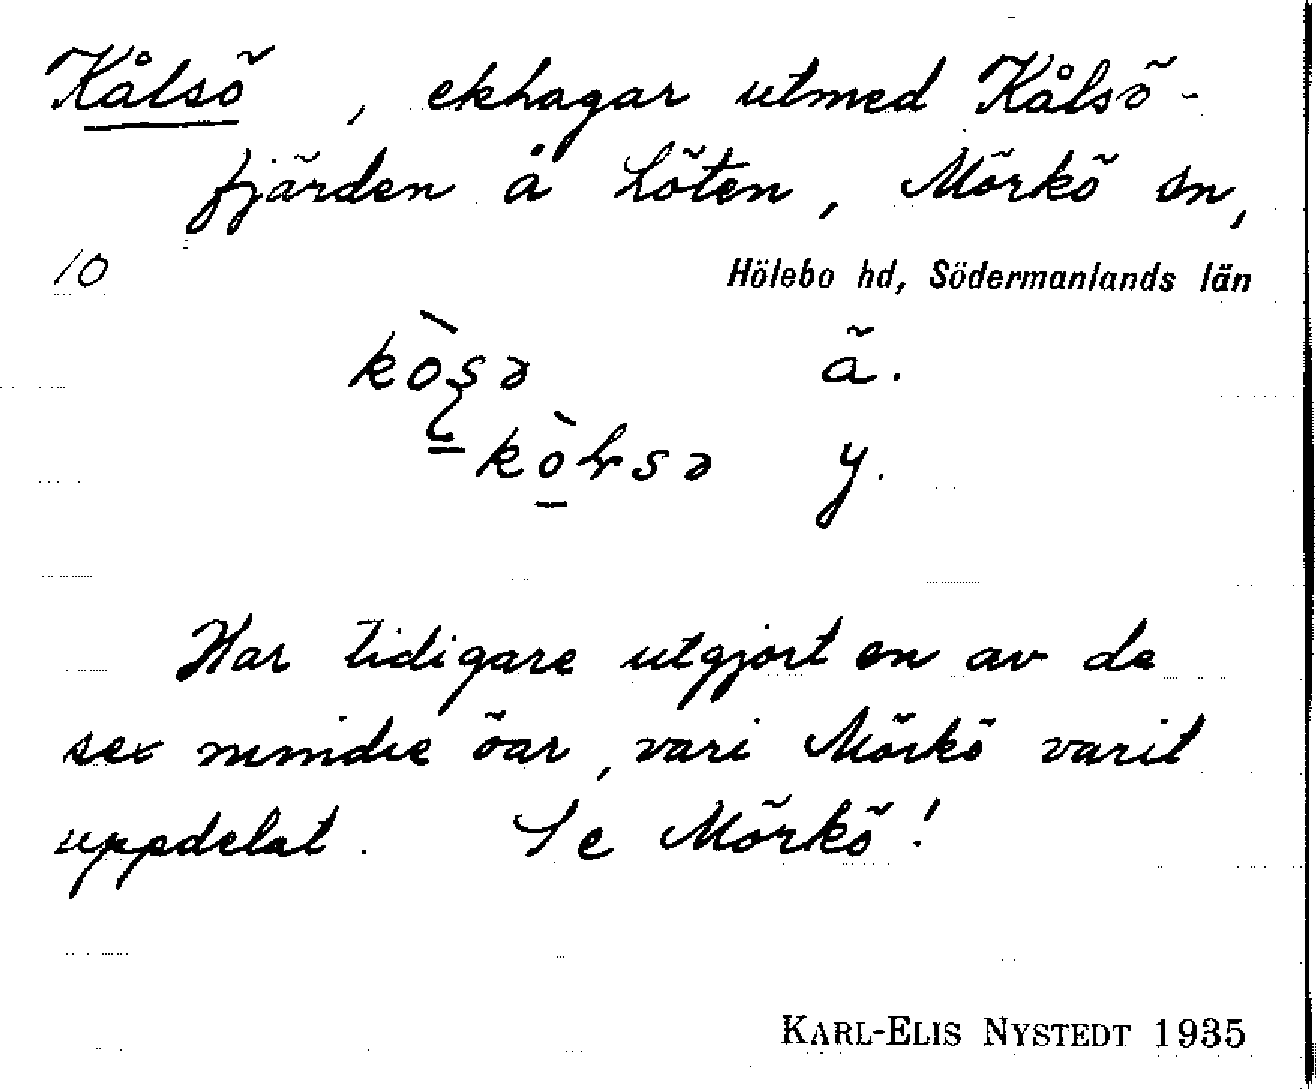 Kålsö, ekhagar utmed Kålsö-
fjärden å Löten, Mörkö sn,
10 Hölebo hd, Södermanlands län
kò̱ʂə ä.
kò̱lsə y.
Har tidigare utgjort en av de
sex mindre öar, vari Mörkö varit
uppdelat. Se Mörkö!
KARL-ELIS NYSTEDT 1935